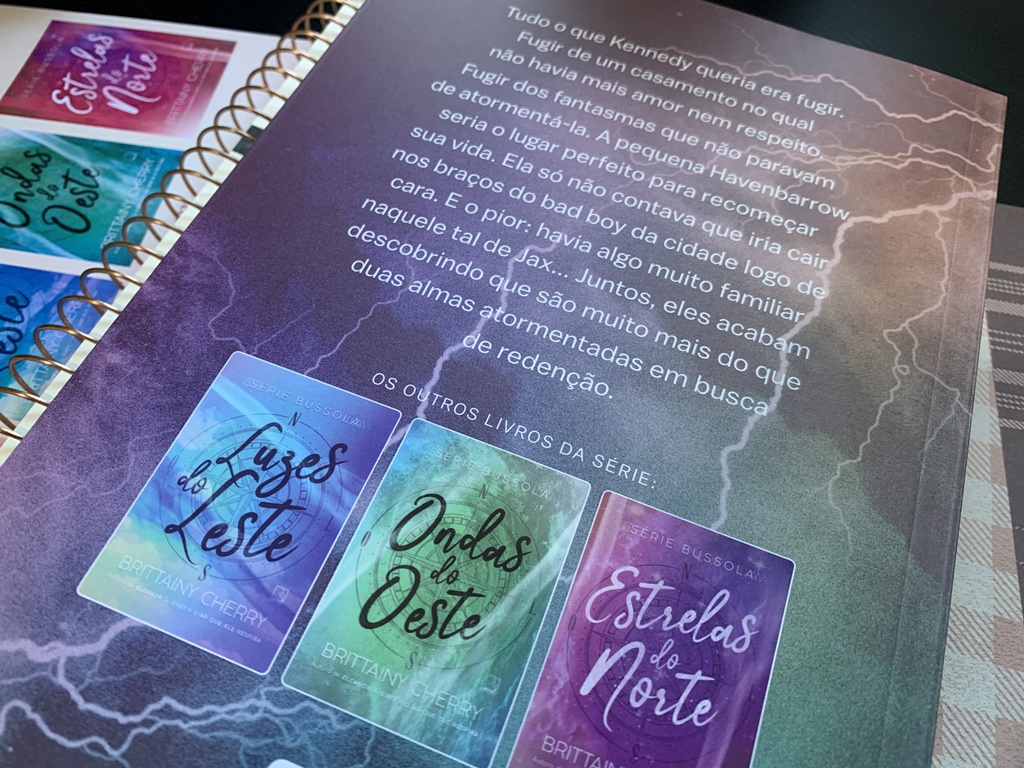 Estrelas
do
Norte
BRITTAINY CHERRY
Ondas
do
Oeste
BRITTAINY CHERRY
Tudo o que Kennedy queria era fugir.
Fugir de um casamento no qual
não havia mais amor nem respeito.
Fugir dos fantasmas que não paravam
de atormentá-la. A pequena Havenbarrow
seria o lugar perfeito para recomeçar
sua vida. Ela só não contava que iria cair
nos braços do bad boy da cidade logo de
cara. E o pior: havia algo muito familiar
naquele tal de Jax... Juntos, eles acabam
descobrindo que são muito mais do que
duas almas atormentadas em busca
de redenção.
OS OUTROS LIVROS DA SÉRIE:
SÉRIE BÚSSOLA
N
Luzes
do
Leste
S
BRITTAINY CHERRY
SÉRIE BÚSSOLA
N
Ondas
do
Oeste
S
BRITTAINY CHERRY
SÉRIE BÚSSOLA
N
Estrelas
do
Norte
S
BRITTAINY